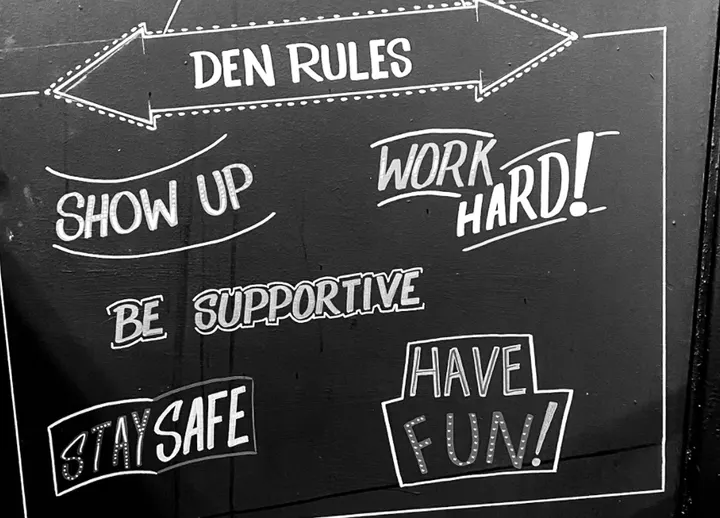 DEN RULES
SHOW UP
WORK
HARD!
BE SUPPORTIVE
STAY SAFE
HAVE
FUN!